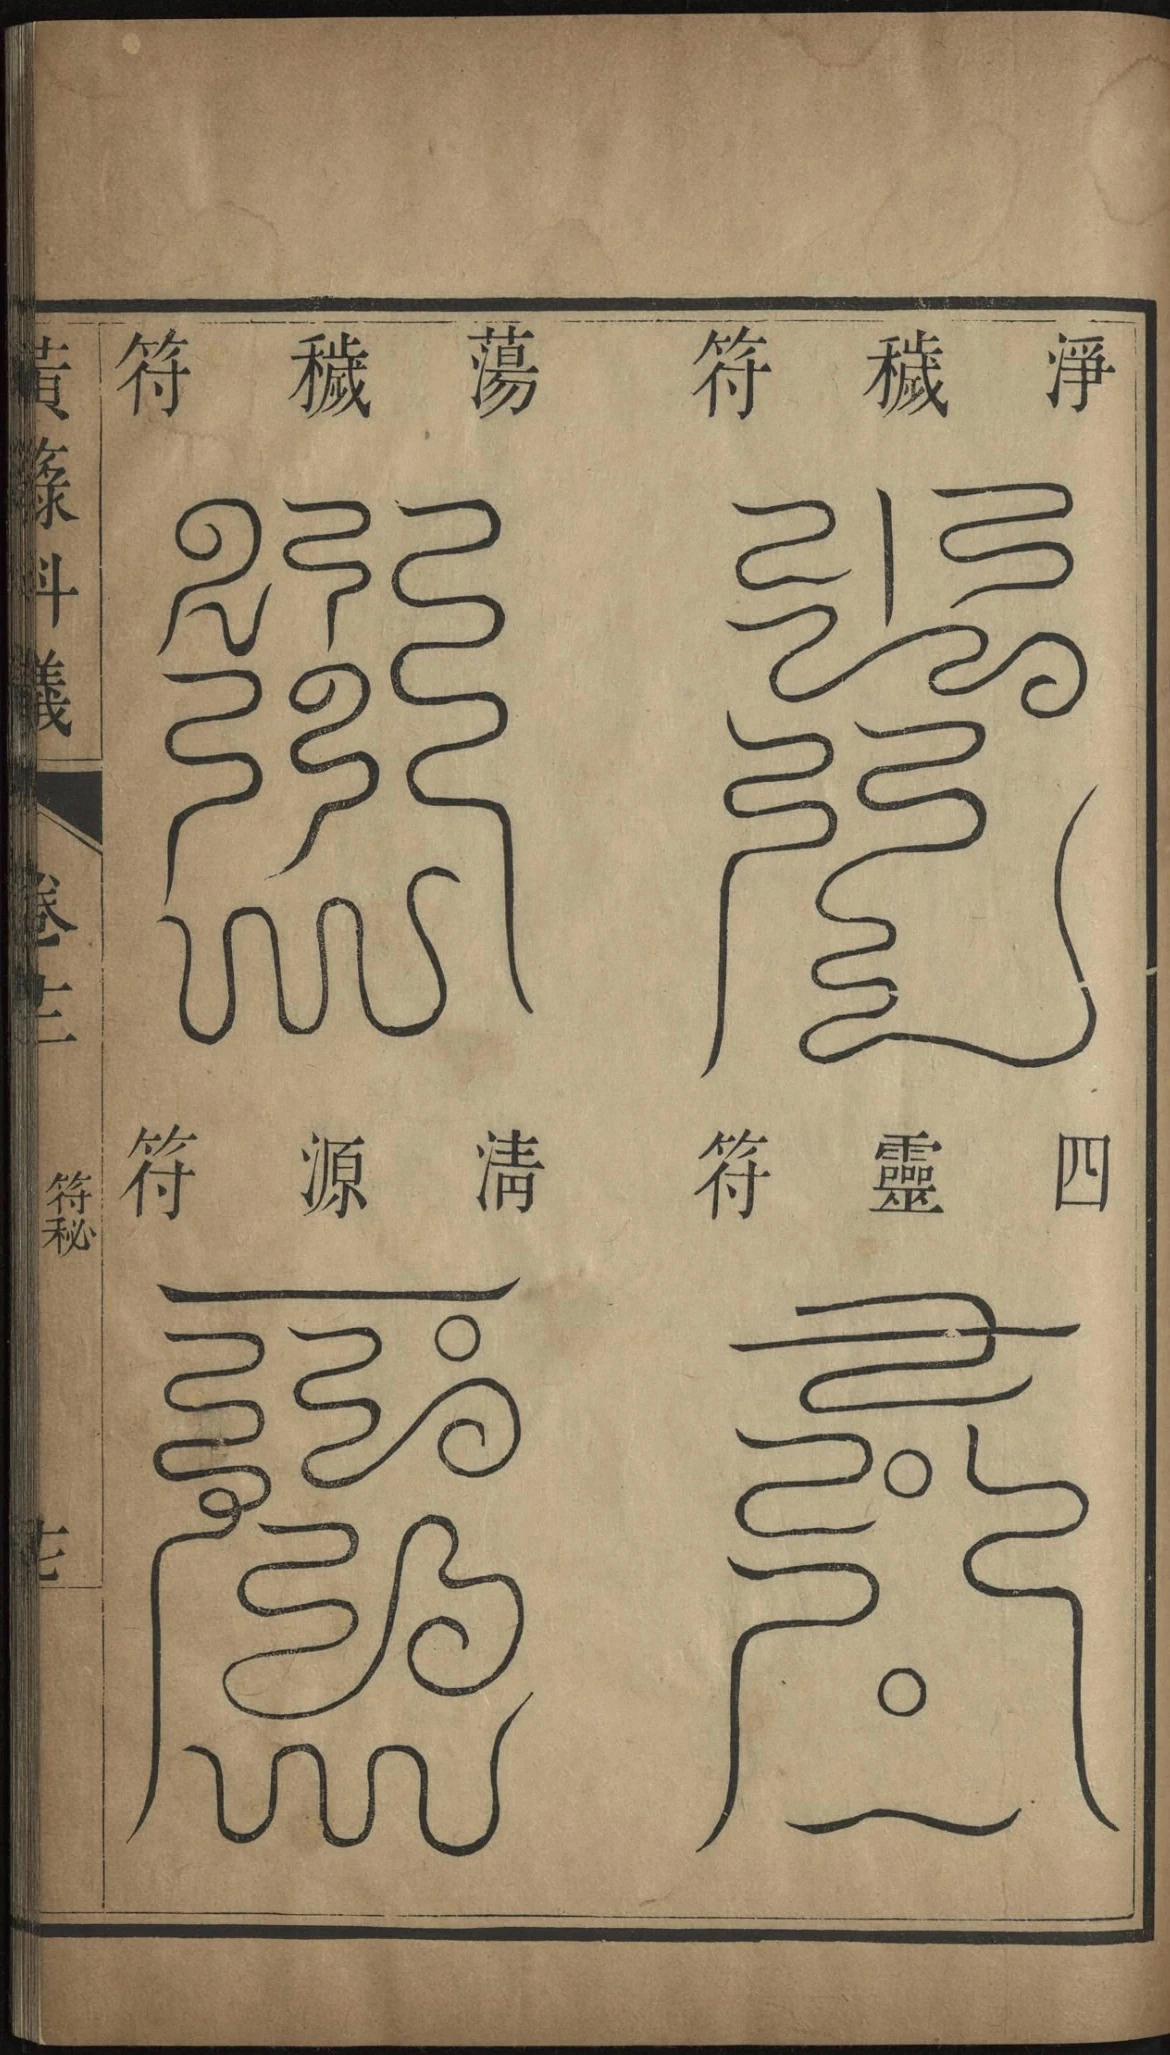 淨穢符
蕩穢符
四靈符
清源符
黃籙科儀
卷十二
符秘